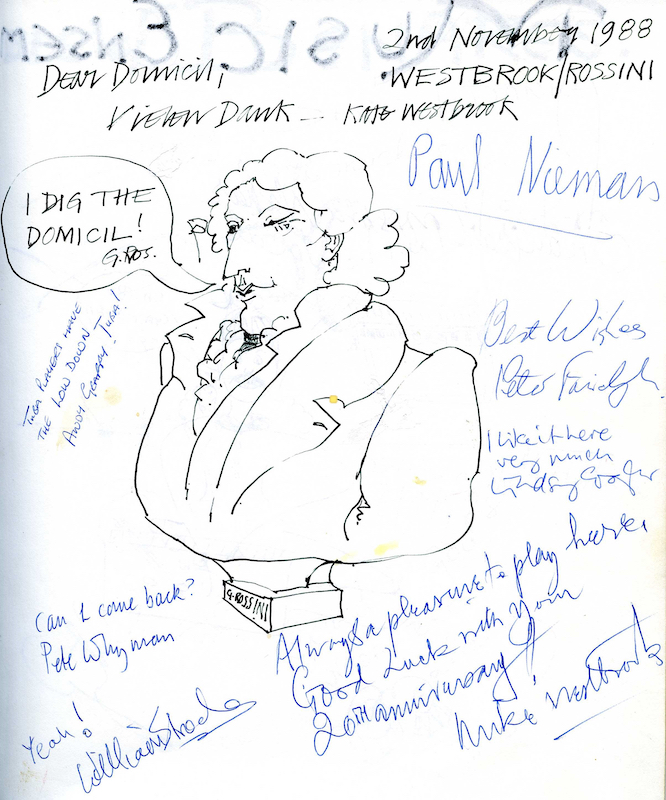 2nd November 1988
Dear Domicil,
WESTBROOK/ROSSINI
Vielen Dank – Kate Westbrook
Paul Nieman
I DIG THE
DOMICIL!
G. ROS.
TUBA PLAYERS HAVE
THE LOW DOWN
ANDY GRAPPY - TUBA!
Best Wishes
Peter
I like it here
very much
Lindsay Cooper
G. ROSSINI
Can I come back?
Pete Whyman
Always a pleasure to play here.
Good Luck with your
20TH anniversary!
Mike Westbrook
Yeah!